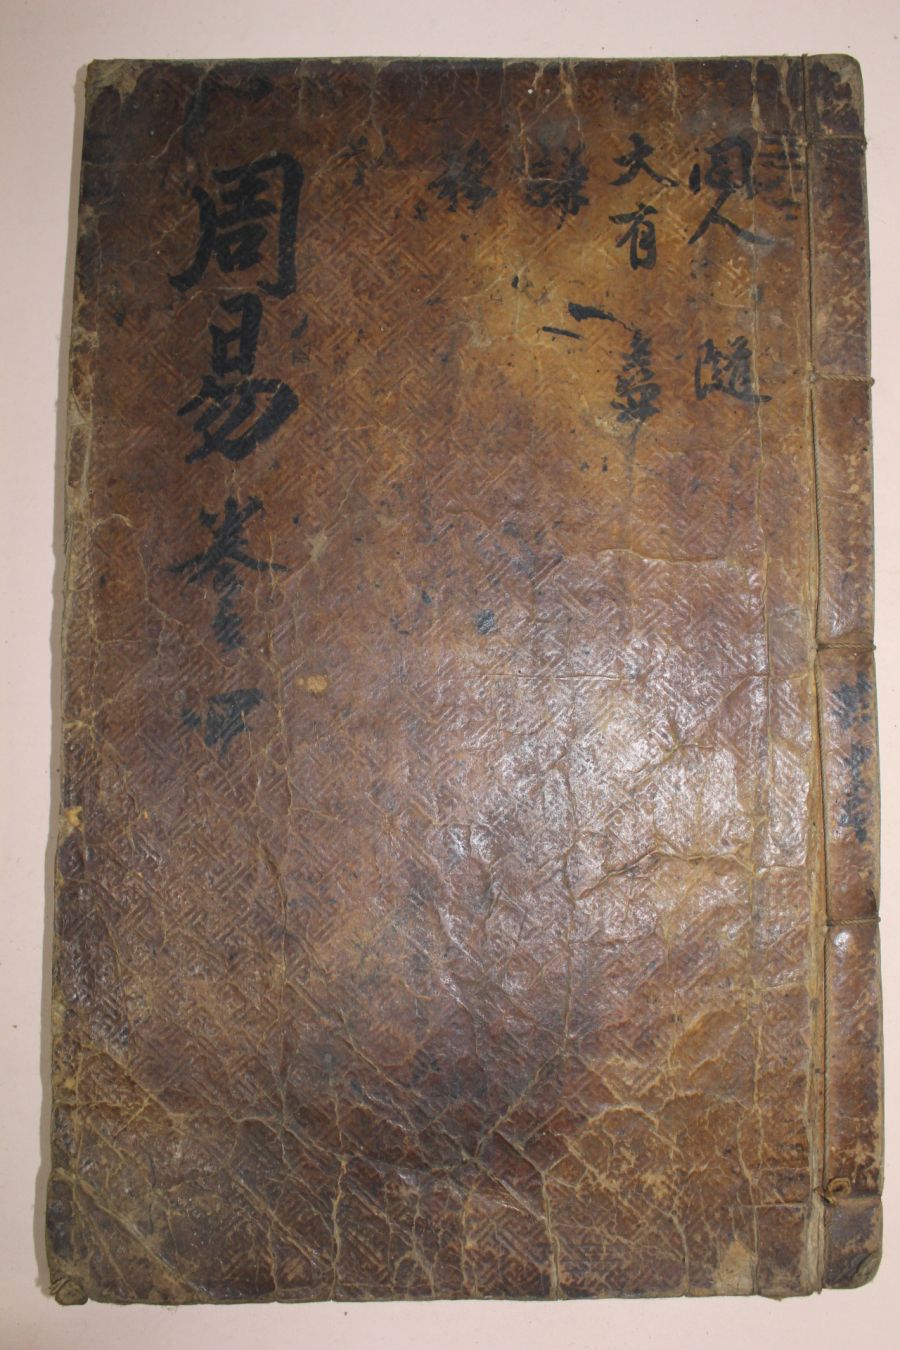 同人 隨
大有
謙
豫
周易 卷之四